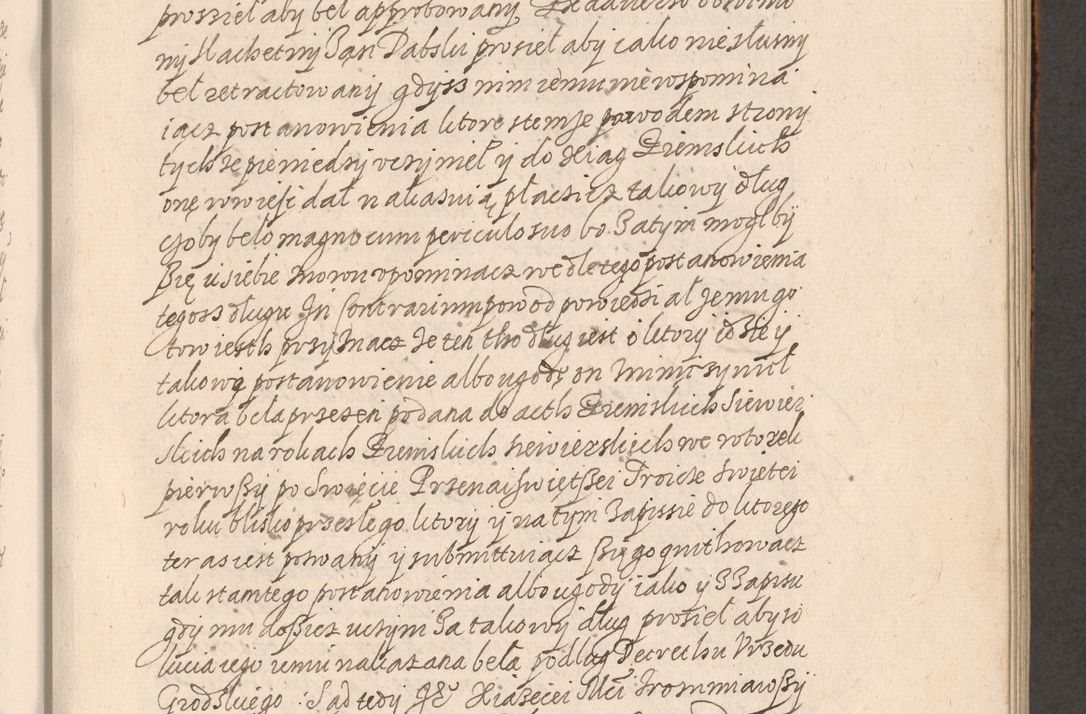 proszieł aby beł approbowany, Ex adverso obzałowa
ny Slachetny Pan Dabski prosieł aby iako niesłusny
beł retractowany gdysz nim iemu nie wspomina
iącz postanowienia ktore stemże powodem strony
tych że pieniedzy ucżynieł y do Xiag Ziemskich
onę wwieść dał nakasuią płacsicz takowy dług
czoby beło magno cum periculo suo bo Zatym mogł by
Się u siebie znowu vpominacz we dle tego postanowienia
tegosz długu In Contrarium powod powiedsiał Jemu go
towiesth przyznacz Je ten tho dług iest o ktory idsie y
takowe postanowienie albo ugodę on z nim cżynieł
ktora beła przezeń podana do acth Ziemskich Siewier
skich na rokach Ziemskich siewierskich we wtorek
pierwszy po Swięcie Przenaiświętszei Troicże Swiętei
roku blisko przesłego ktory y na tym Zapissie do ktorego
teras iest powany y submittuiącz się go quithowacz
tak stamtego postanowienia albo ugody iako y z Zapisu
gdy mu dosicz ucżyni Za takowy dług prosieł aby so
lucia iego iemu nakazana beła podług Decrethu Vrzedu
Grodskiego : Sąd tedy JE° Xiażecei Mći